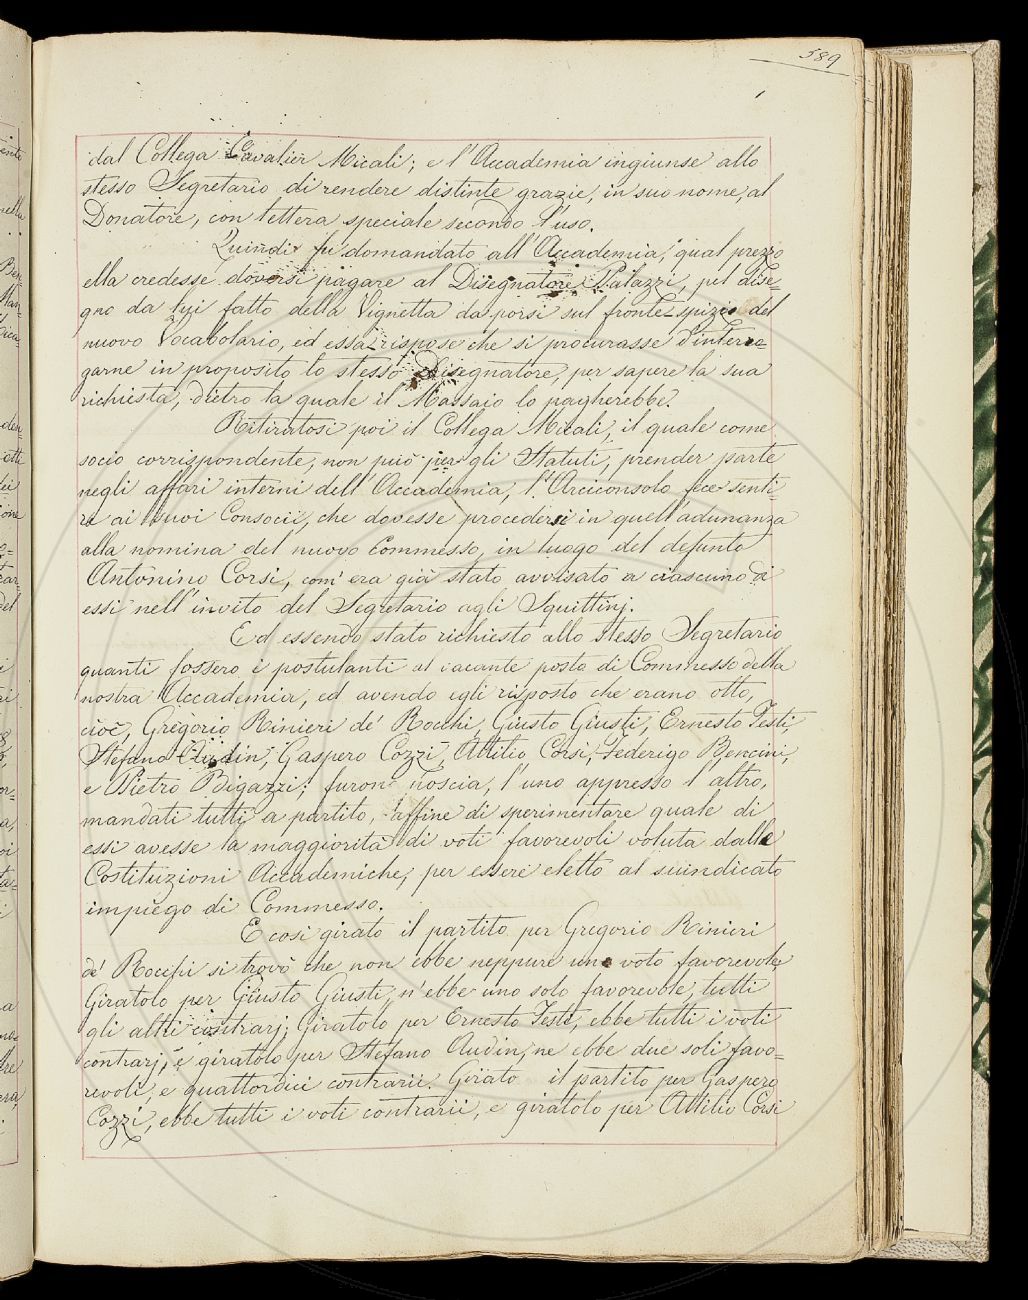 589
dal Collega Cavalier Micali; e l'Accademia ingiunse allo
stesso Segretario di rendere distinte grazie, in suo nome, al
Donatore, con lettera speciale secondo l'uso.
Quindi fu domandato all'Accademia, qual prezzo
ella credesse doversi pagare al Disegnatore Palazzi, pel dise-
gno da lui fatto della Vignetta da porsi sul frontespizio del
nuovo Vocabolario, ed essa rispose che si procurasse d'interro-
garne in proposito lo stesso Disegnatore, per sapere la sua
richiesta, dietro la quale il Massaio lo pagherebbe.
Ritiratosi poi il Collega Micali, il quale come
socio corrispondente, non può per gli Statuti, prender parte
negli affari interni dell'Accademia, l'Arciconsolo fece senti-
re ai suoi Consocii, che dovesse procedersi in quell'adunanza
alla nomina del nuovo Commesso, in luogo del defunto
Antonino Corsi, com'era già stato avvisato a ciascuno di
essi nell'invito del Segretario agli Squittinj.
Ed essendo stato richiesto allo stesso Segretario
quanti fossero i postulanti al vacante posto di Commesso della
nostra Accademia, ed avendo egli risposto che erano otto,
cioè, Gregorio Rinieri de' Rocchi, Giusto Giusti, Ernesto Testi,
Stefano Audin, Gaspero Cozzi, Attilio Corsi, Federigo Bencini,
e Pietro Bigazzi; furon poscia, l'uno appresso l'altro,
mandati tutti a partito, affine di sperimentare quale di
essi avesse la maggiorità di voti favorevoli voluta dalle
Costituzioni Accademiche, per essere eletto al suindicato
impiego di Commesso.
E così girato il partito per Gregorio Rinieri
de' Rocchi si trovò che non ebbe neppure uno voto favorevole,
Giratolo per Giusto Giusti, n'ebbe uno solo favorevole, tutti
gli altri contrarj; Giratolo per Ernesto Testi, ebbe tutti i voti
contrarj; e giratolo per Stefano Audin, ne ebbe due soli favo-
revoli, e quattordici contrarii. Girato il partito per Gaspero
Cozzi, ebbe tutti i voti contrarii, e giratolo per Attilio Corsi